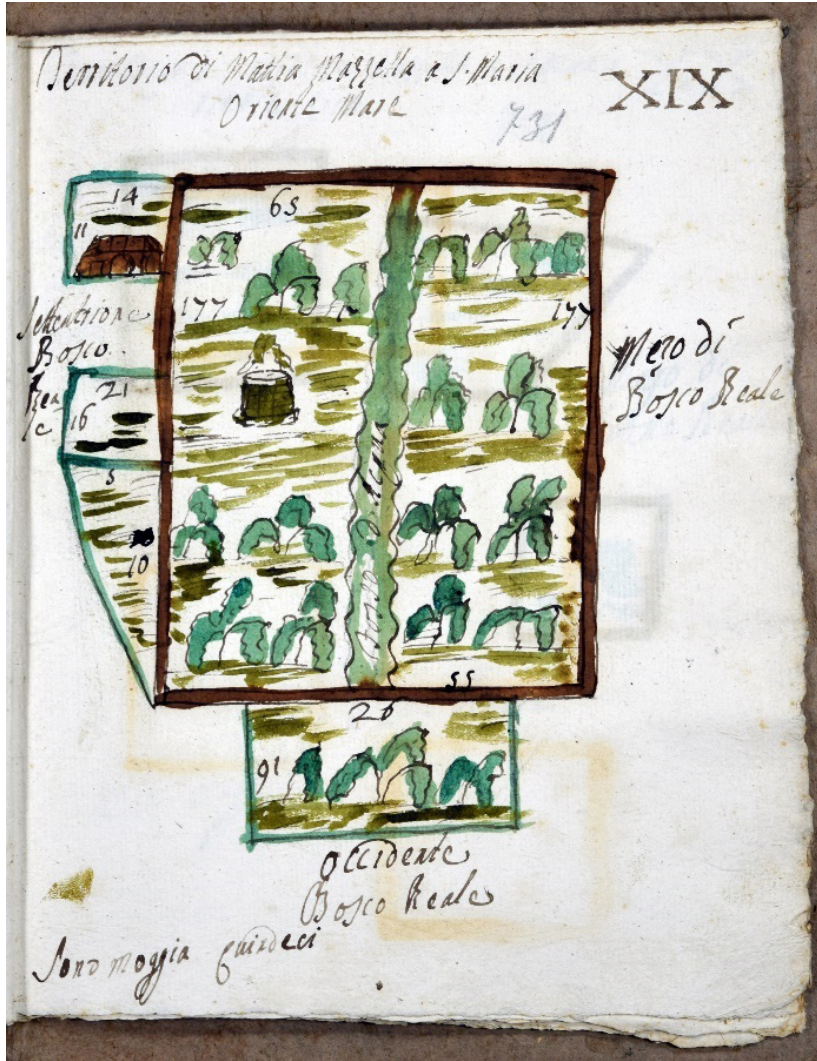 Territorio di Mattia Mazzella a S. Maria
Oriente Mare
XIX
731
14
11
65
177
177
Settentrione
Bosco
Rea
le
21
16
5
10
Mezo di
Bosco Reale
55
26
91
Occidente
Bosco Reale
Sono moggia quindeci